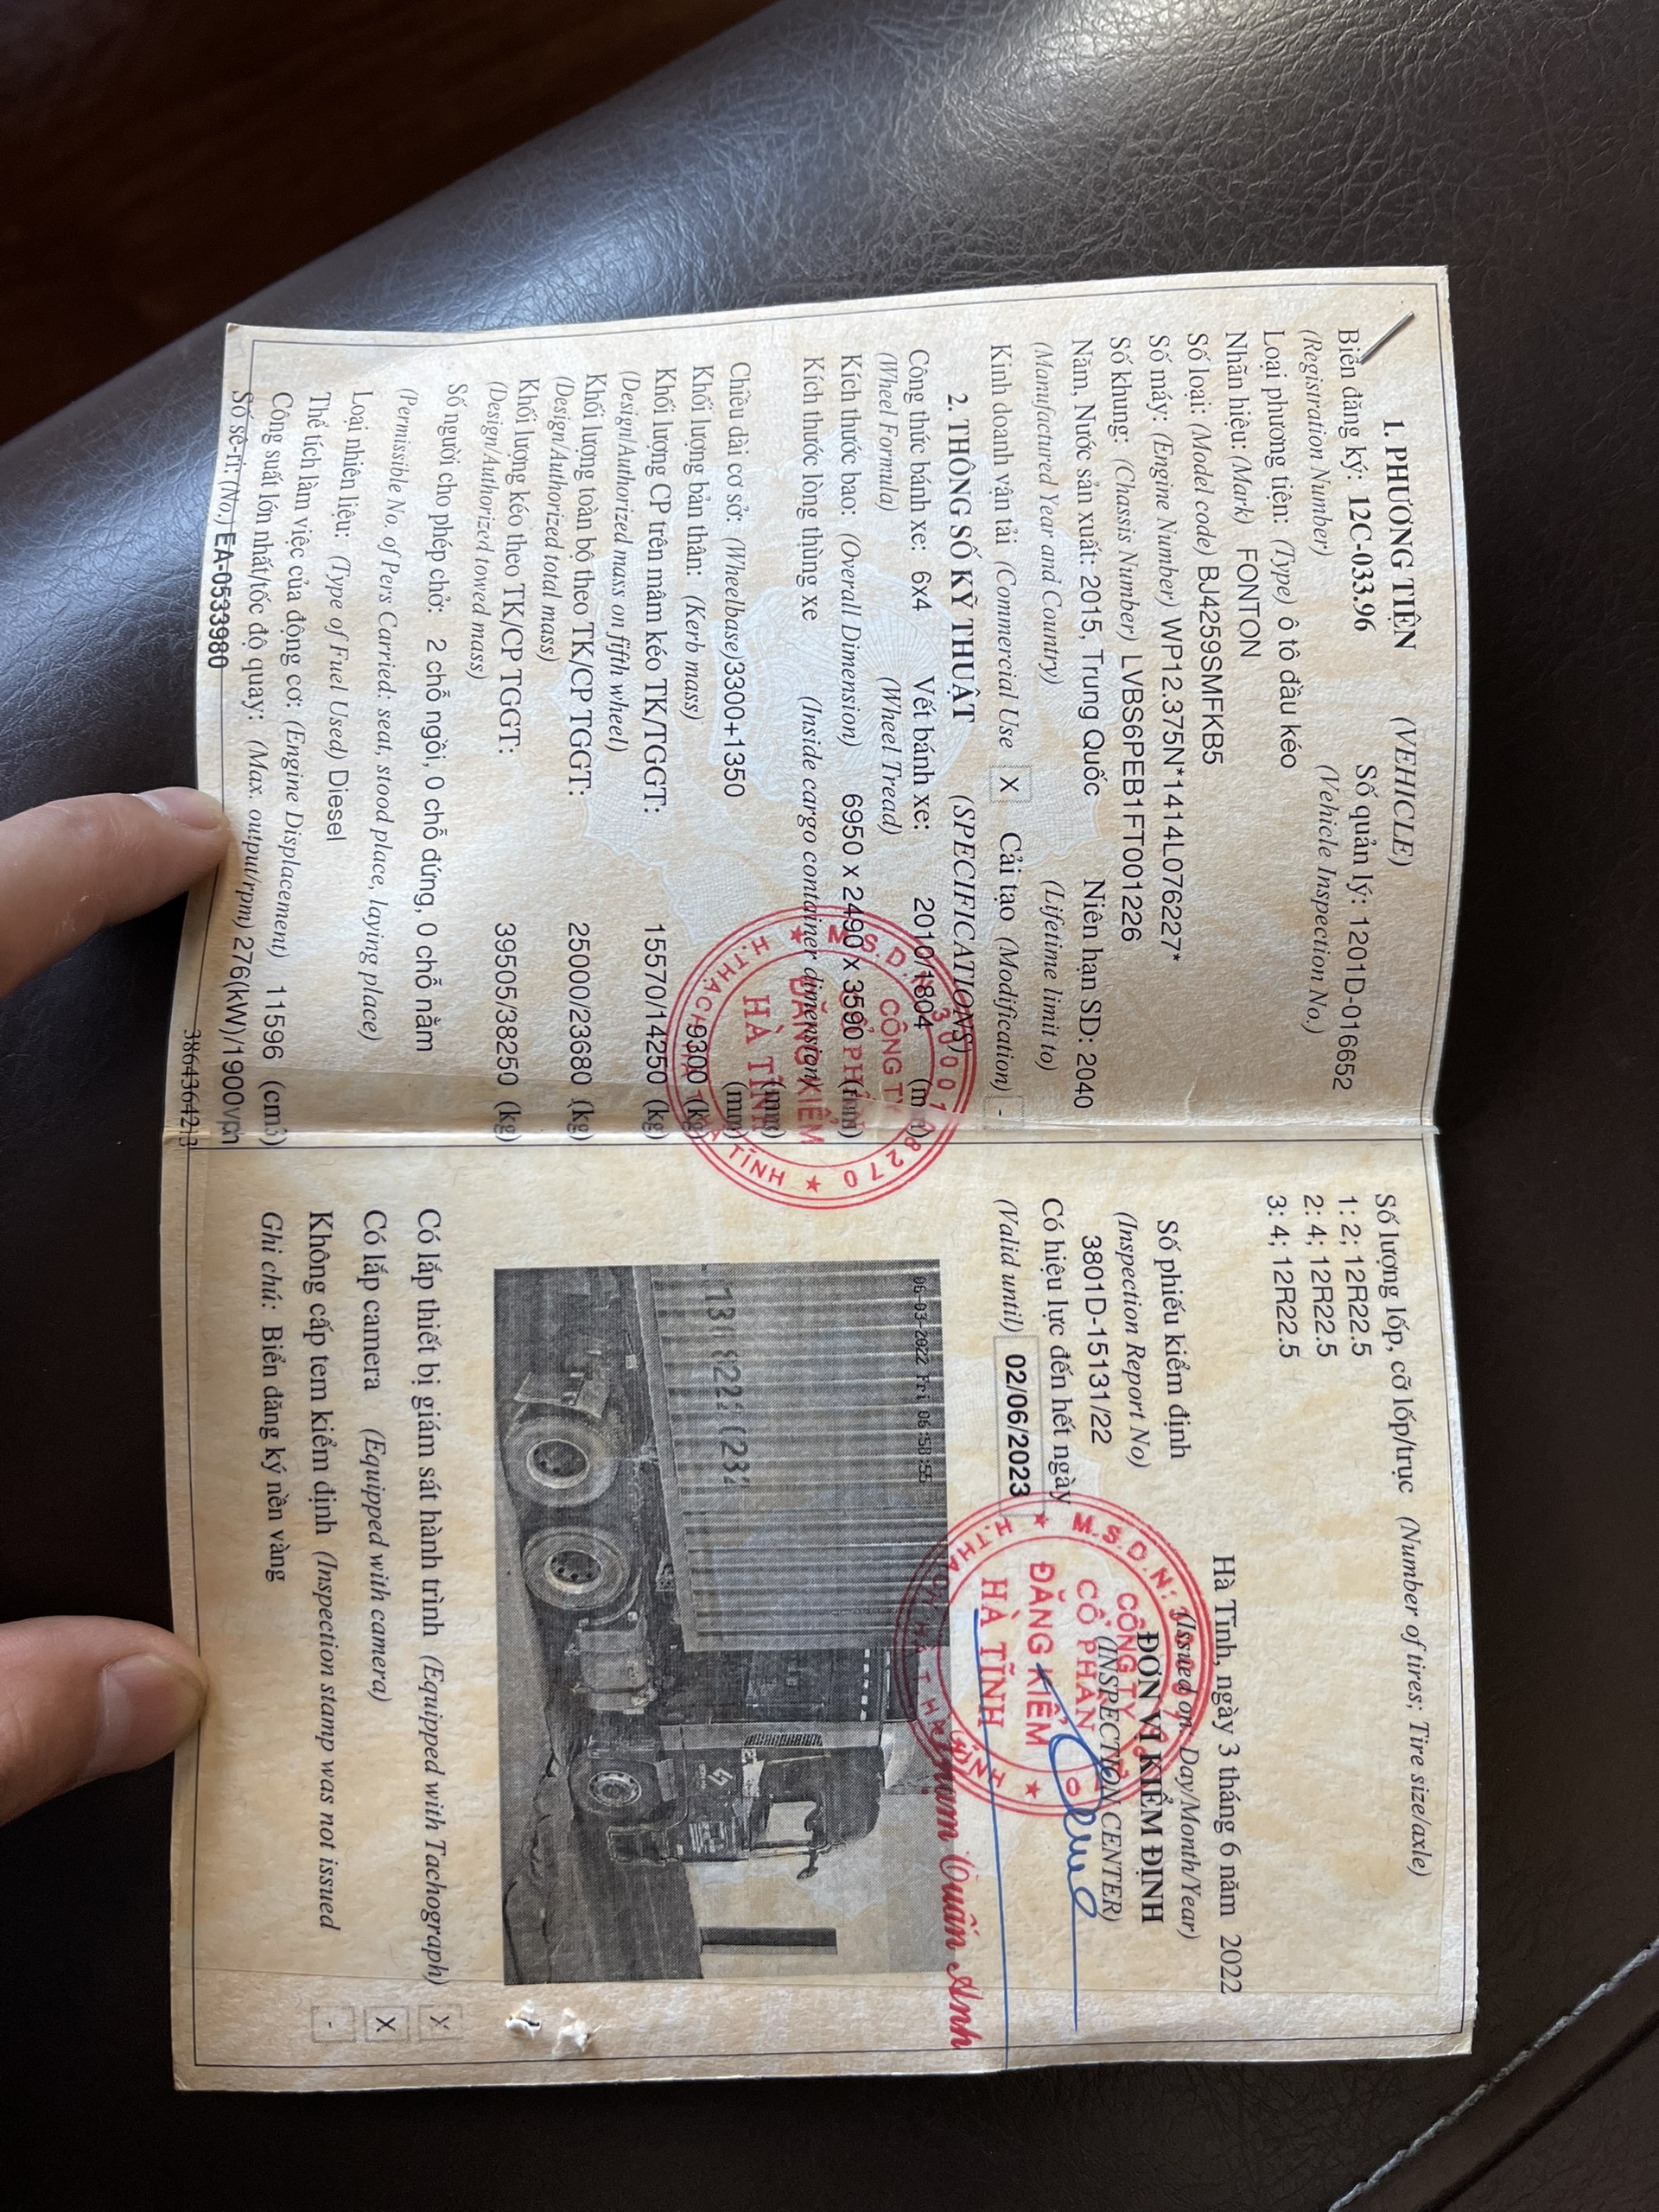 1. PHƯƠNG TIỆN (VEHICLE)
Biển đăng ký: 12C-033.96 Số quản lý: 1201D-016652
(Registration Number) (Vehicle Inspection No.)
Loại phương tiện: (Type) ô tô đầu kéo
Nhãn hiệu: (Mark) FONTON
Số loại: (Model code) BJ4259SMFKB5
Số máy: (Engine Number) WP12.375N*1414L076227*
Số khung: (Chassis Number) LVBS6PEB1FT001226
Năm, Nước sản xuất: 2015, Trung Quốc Niên hạn SD: 2040
(Manufactured Year and Country) (Lifetime limit to)
Kinh doanh vận tải (Commercial Use X Cải tạo (Modification) -
2. THÔNG SỐ KỸ THUẬT (SPECIFICATIONS)
Công thức bánh xe: 6x4 Vết bánh xe: 2010/1804 (mm)
(Wheel Formula) (Wheel Tread)
Kích thước bao: (Overall Dimension) 6950 x 2490 x 3590 (mm)
Kích thước lòng thùng xe (Inside cargo container dimension) (mm)
Chiều dài cơ sở: (Wheelbase)3300+1350 (mm)
Khối lượng bản thân: (Kerb mass) 9300 (kg)
Khối lượng CP trên mâm kéo TK/TGGT: 15570/14250 (kg)
(Design/Authorized mass on fifth wheel)
Khối lượng toàn bộ theo TK/CP TGGT: 25000/23680 (kg)
(Design/Authorized total mass)
Khối lượng kéo theo TK/CP TGGT: 39505/38250 (kg)
(Design/Authorized towed mass)
Số người cho phép chở: 2 chỗ ngồi, 0 chỗ đứng, 0 chỗ nằm
(Permissible No. of Pers Carried: seat, stood place, laying place)
Loại nhiên liệu: (Type of Fuel Used) Diesel
Thể tích làm việc của động cơ: (Engine Displacement) 11596 (cm3)
Công suất lớn nhất/tốc độ quay: (Max. output/rpm) 276(kW)/1900vph
Số sê-ri: (No.) EA-0533980
CÔNG TY
CỔ PHẦN
ĐĂNG KIỂM
HÀ TĨNH
Số lượng lốp, cỡ lốp/trục (Number of tires; Tire size/axle)
1: 2; 12R22.5
2: 4; 12R22.5
3: 4; 12R22.5
Hà Tĩnh, ngày 3 tháng 6 năm 2022
(Issued on: Day/Month/Year)
Số phiếu kiểm định ĐƠN VỊ KIỂM ĐỊNH
(Inspection Report No) (INSPECTION CENTER)
3801D-15131/22
Có hiệu lực đến hết ngày
(Valid until) 02/06/2023
CÔNG TY
CỔ PHẦN
ĐĂNG KIỂM
HÀ TĨNH
06-03-2022 Fri 06:58:55
Có lắp thiết bị giám sát hành trình (Equipped with Tachograph) X
Có lắp camera (Equipped with camera) X
Không cấp tem kiểm định (Inspection stamp was not issued -
Ghi chú: Biển đăng ký nền vàng